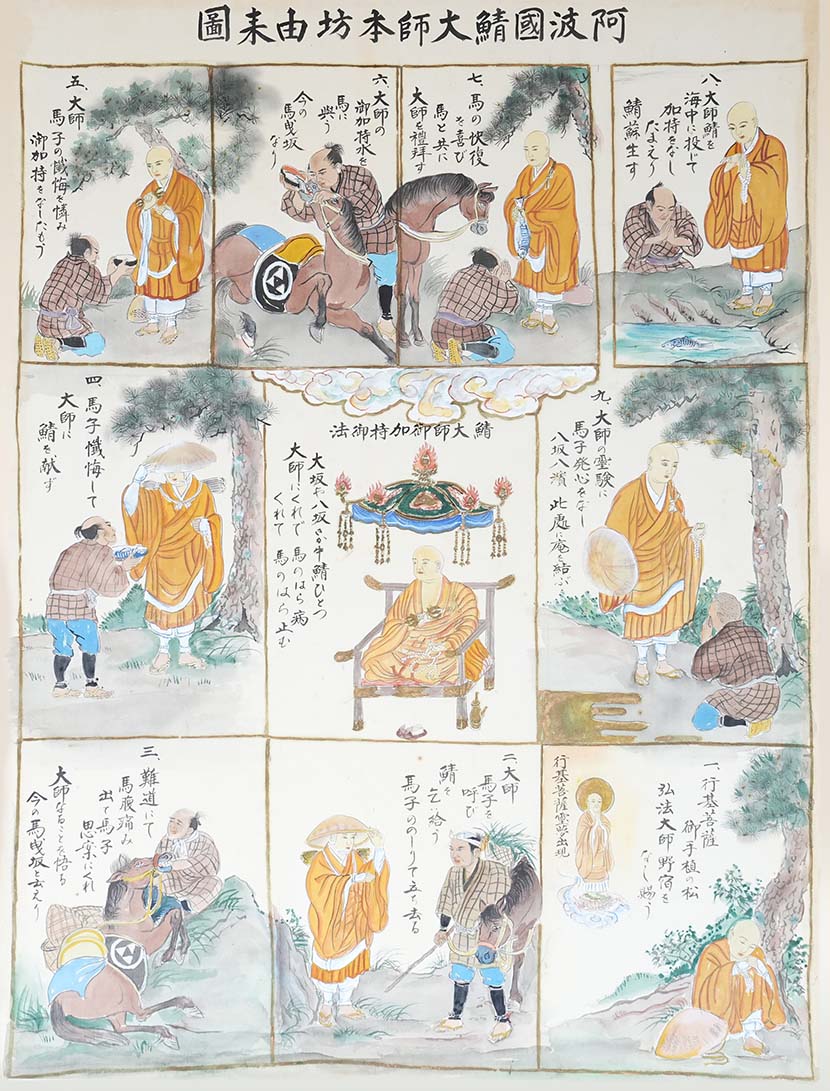 阿波國鯖大師本坊由耒圖
一、行基菩薩
御手植の松
弘法大師野宿を
なし賜う
行基菩薩霊夢出現
二、大師
馬子を
呼び
鯖を
乞い給う
馬子ののしりて立ち去る
三、難道にて
馬腹痛み
出て馬子
思案にくれ
大師なることを悟る
今の馬曳坂と云えり
四、馬子懺悔して
大師に
鯖を献ず
五、大師
馬子の懺悔を憐み
御加持をなしたもう
六、大師の
御加持水を
馬に
與う
今の
馬曳坂
なり
七、馬の快復
を喜び
馬と共に
大師を禮拝す
八、大師鯖を
海中に投じて
加持をなし
たまえり
鯖蘇生す
九、大師の霊験に
馬子発心をなし
八坂八濱 此處に庵を結ぶ
鯖大師御加持御法
大坂や八坂さか中鯖ひとつ
大師にくれで 馬のはら病
くれて 馬のはら止む